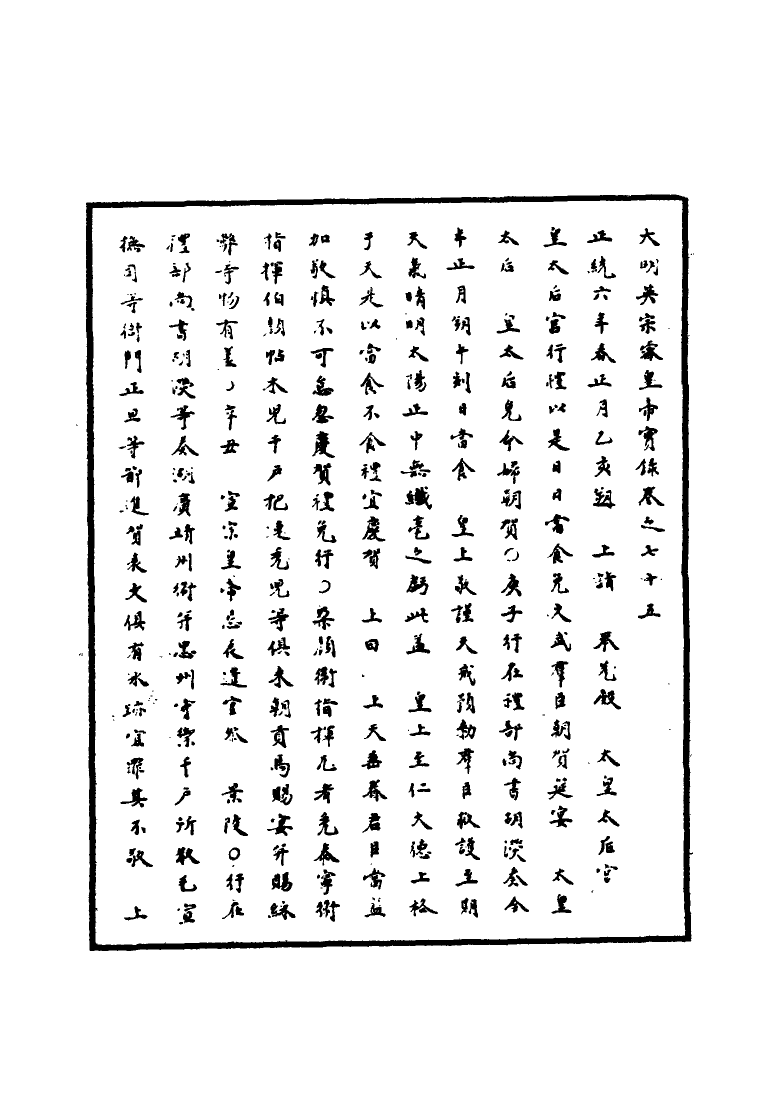 大明英宗睿皇帝實錄卷之七十五
正統六年春正月乙亥朔　上詣　奉先殿　太皇太后宮
皇太后宮行禮以是日日當食免文武羣臣朝賀筵宴　太皇
太后　皇太后免命婦朝賀○庚子行在禮部尚書胡濙奏今
年正月朔午刻日當食　皇上敬謹天戒預勑羣臣救護至期
天氣晴明太陽正中無纖毫之虧此盖　皇上至仁大德上格
于天是以當食不食禮宜慶賀　上曰　上天垂眷君臣當益
加敬慎不可怠忽慶賀禮免行○朶顔衛指揮兀者禿泰寧衛
指揮伯顔帖木兒千戶把速禿兒等俱來朝貢馬賜宴并賜綵
幣等物有差○辛丑　宣宗皇帝忌辰遣官祭　景陵○行在
禮部尚書胡濙等奏湖廣靖州衛并忠州守禦千戶所散毛宣
撫司等衙門正旦等節進賀表文俱有水跡宜罪其不敬　上